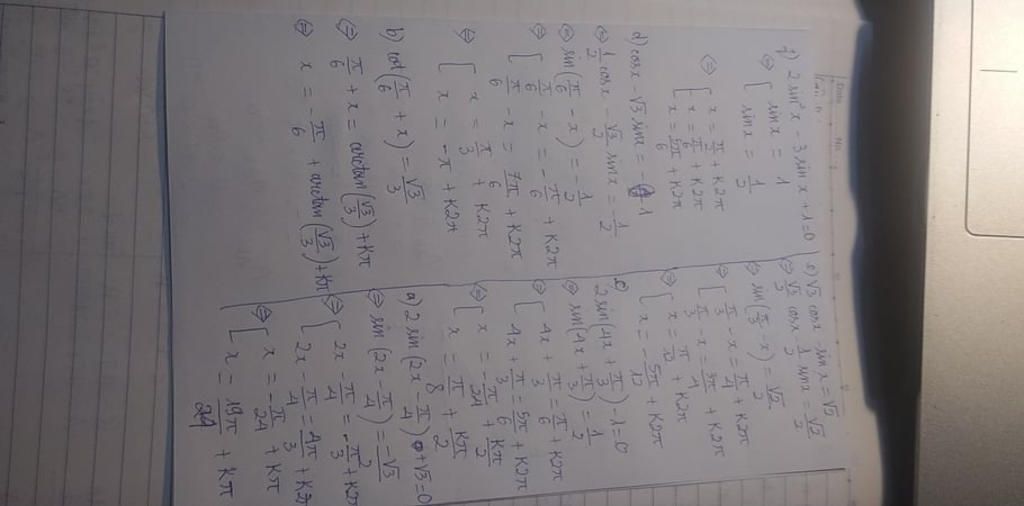 f) 2sin²x - 3sinx + 1 = 0
⇔ [ sinx = 1
sinx = 1/2
⇔ [ x = π/2 + K2π
x = π/6 + K2π
x = 5π/6 + K2π
d) cosx - √3 sinx = -1
⇔ 1/2 cosx - √3/2 sinx = -1/2
⇔ sin(π/6 - x) = -1/2
⇔ [ π/6 - x = -π/6 + K2π
π/6 - x = 7π/6 + K2π
⇔ [ x = π/3 + K2π
x = -π + K2π
b) cot(π/6 + x) = √3/3
⇔ π/6 + x = arctan(√3/3) + Kπ
⇔ x = -π/6 + arctan(√3/3) + Kπ
e) √3 cosx - sinx = √2
⇔ √3/2 cosx - 1/2 sinx = √2/2
⇔ sin(π/3 - x) = √2/2
⇔ [ π/3 - x = π/4 + K2π
π/3 - x = 3π/4 + K2π
⇔ [ x = π/12 + K2π
x = -5π/12 + K2π
c) 2sin(4x + π/3) - 1 = 0
⇔ sin(4x + π/3) = 1/2
⇔ [ 4x + π/3 = π/6 + K2π
4x + π/3 = 5π/6 + K2π
⇔ [ x = -π/24 + Kπ/2
x = π/8 + Kπ/2
a) 2sin(2x - π/4) + √3 = 0
⇔ sin(2x - π/4) = -√3/2
⇔ [ 2x - π/4 = -π/3 + K2π
2x - π/4 = 4π/3 + K2π
⇔ [ x = -π/24 + Kπ
x = 19π/24 + Kπ